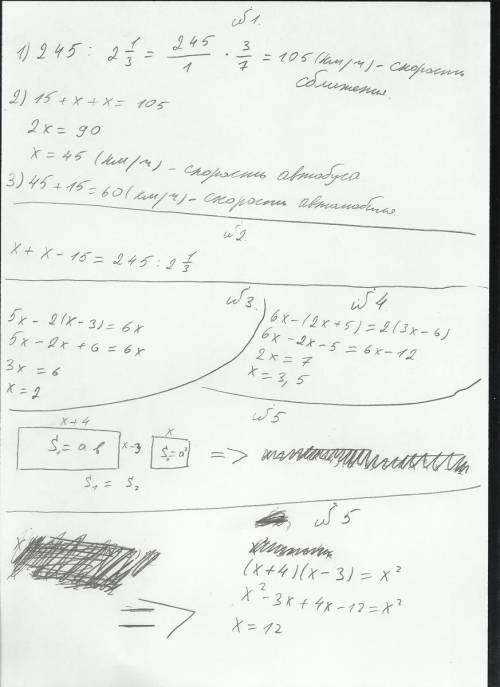 №1.
1) 245 : 2 1/3 = 245/1 · 3/7 = 105 (км/ч) - скорость
сближения.
2) 15 + x + x = 105
2x = 90
x = 45 (км/ч) - скорость автобуса
3) 45 + 15 = 60 (км/ч) - скорость автомобиля
№2.
x + x - 15 = 245 : 2 1/3
№3.
5x - 2(x - 3) = 6x
5x - 2x + 6 = 6x
3x = 6
x = 2
№4
6x - (2x + 5) = 2(3x - 6)
6x - 2x - 5 = 6x - 12
2x = 7
x = 3,5
№5
x + 4
S₁ = a b
x - 3
x
S₂ = a²
=>
S₁ = S₂
№5
=>
(x + 4)(x - 3) = x²
x² - 3x + 4x - 12 = x²
x = 12